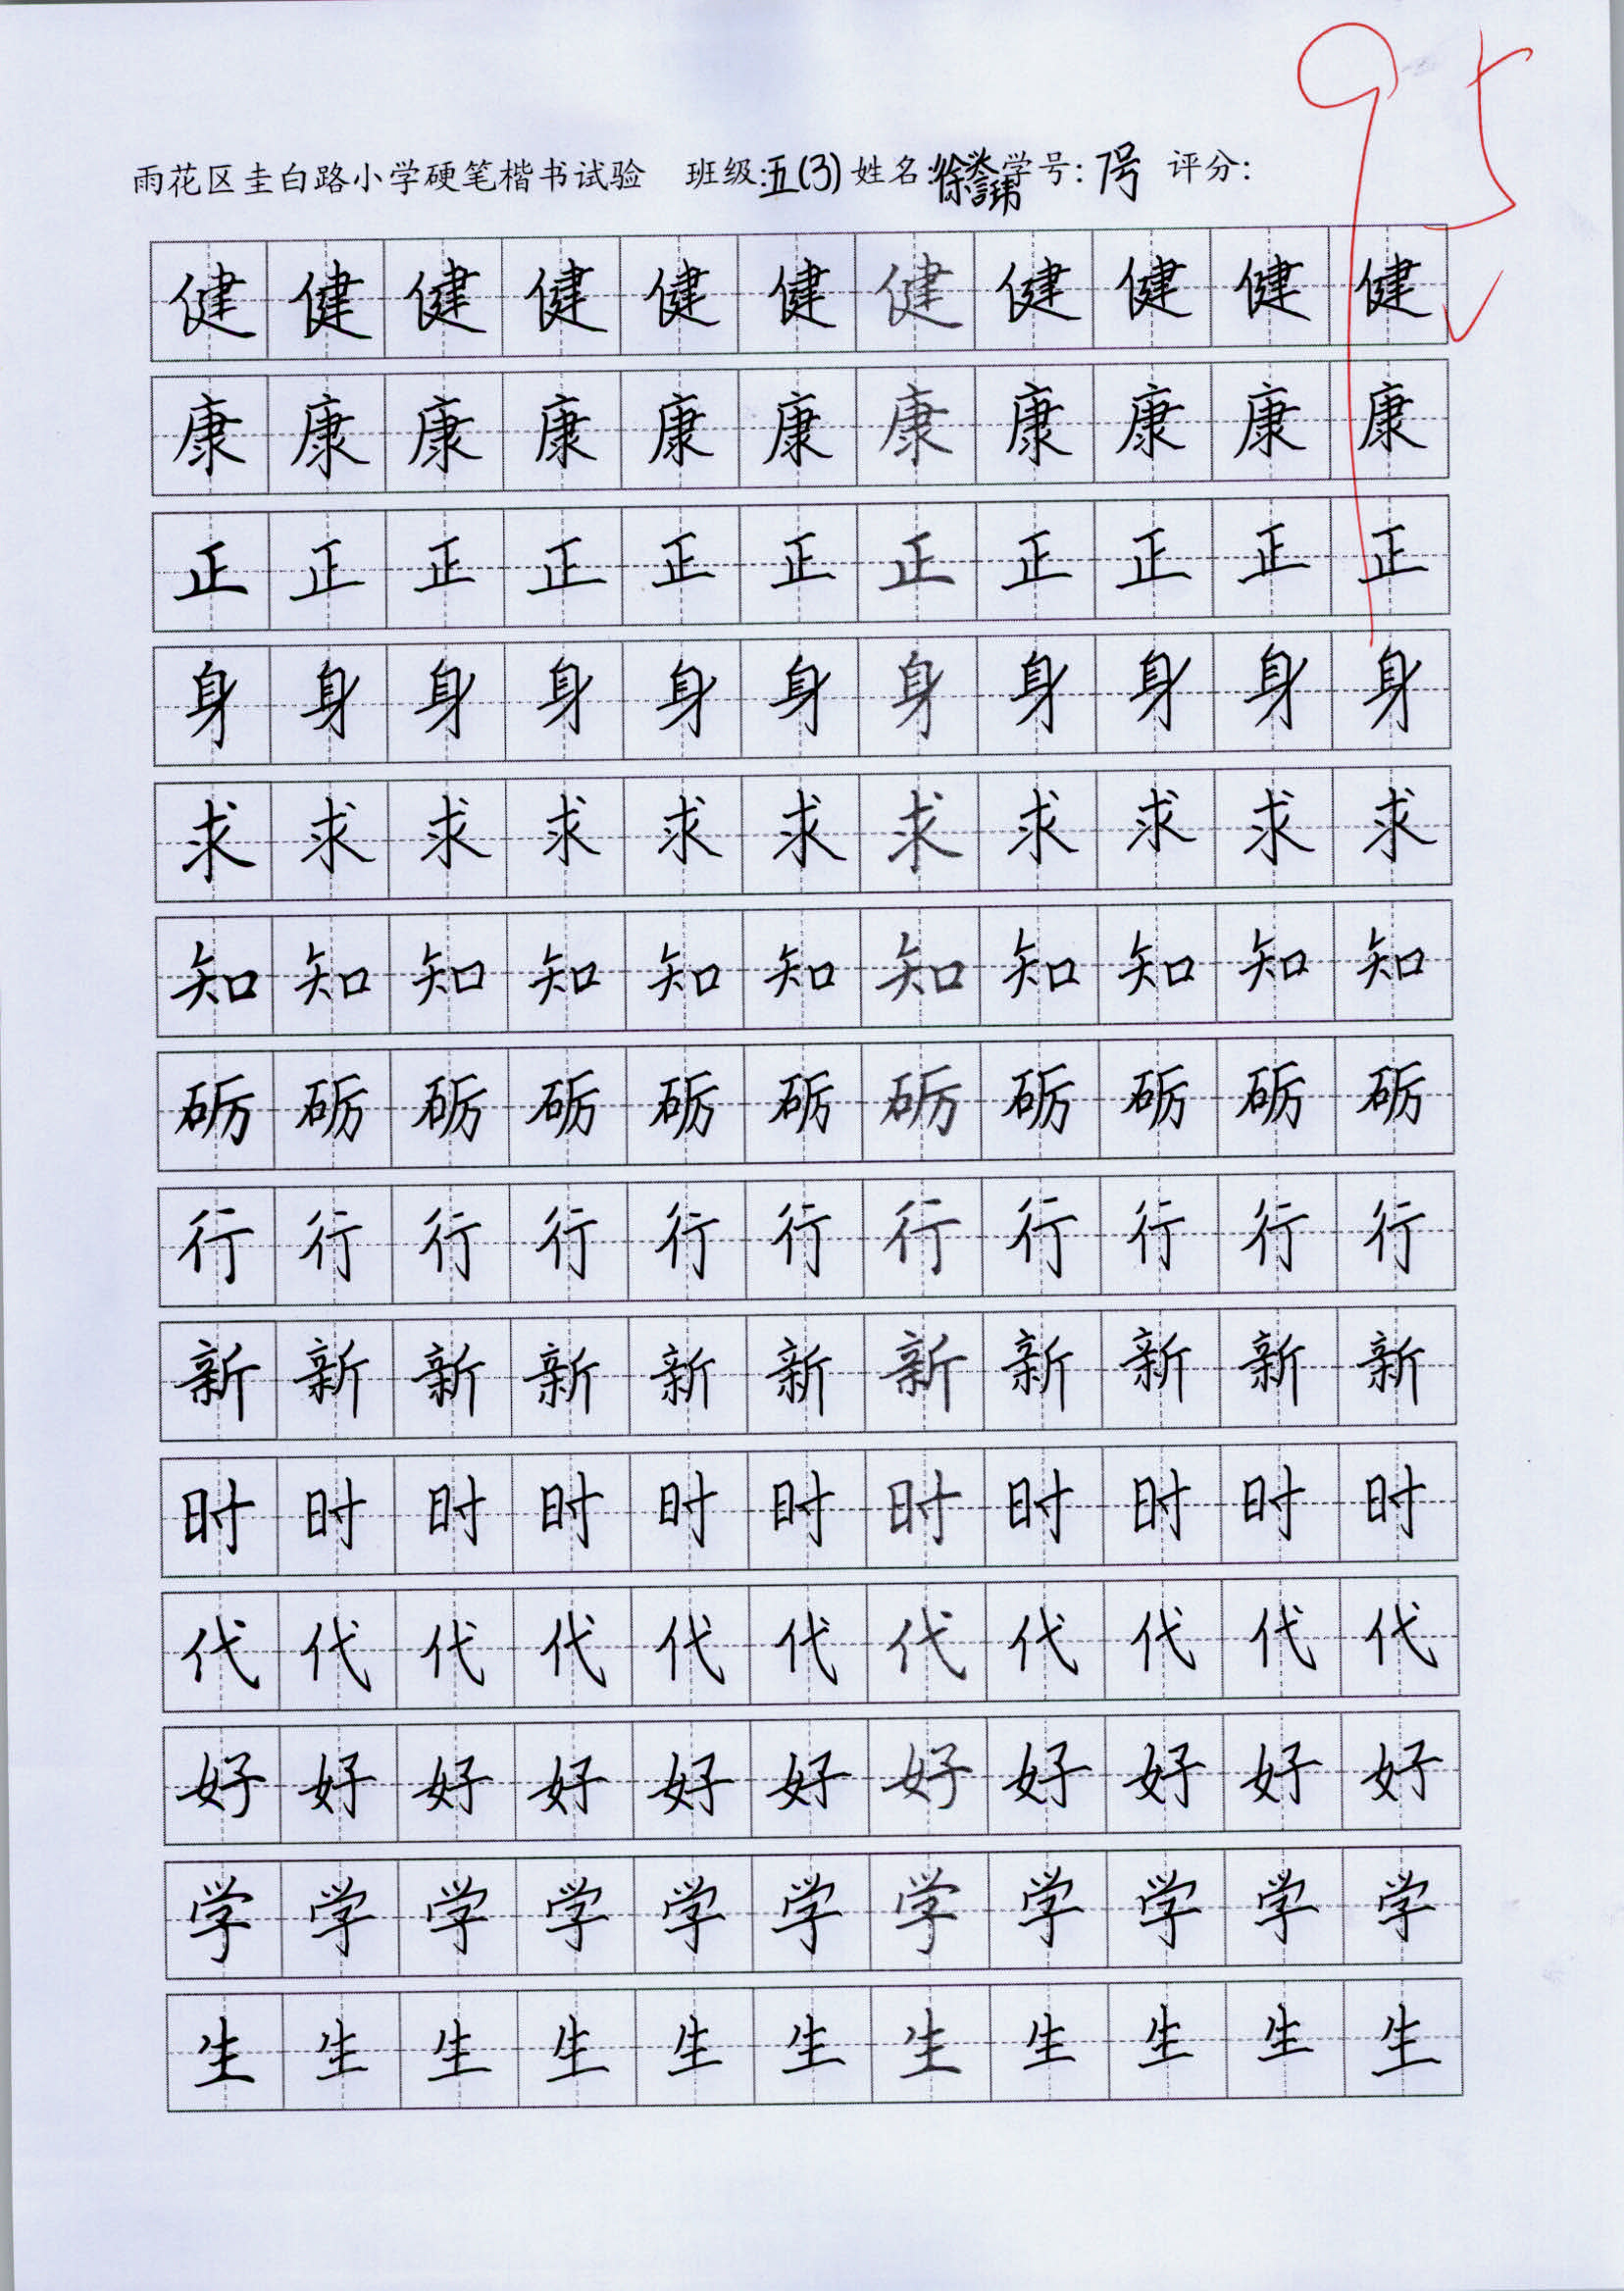 雨花区圭白路小学硬笔楷书试验 班级:五(3) 姓名:徐 学号:7号 评分:
95
健健健健健健健健健健健
康康康康康康康康康康康
正正正正正正正正正正正
身身身身身身身身身身身
求求求求求求求求求求求
知知知知知知知知知知知
砺砺砺砺砺砺砺砺砺砺砺
行行行行行行行行行行行
新新新新新新新新新新新
时时时时时时时时时时时
代代代代代代代代代代代
好好好好好好好好好好好
学学学学学学学学学学学
生生生生生生生生生生生